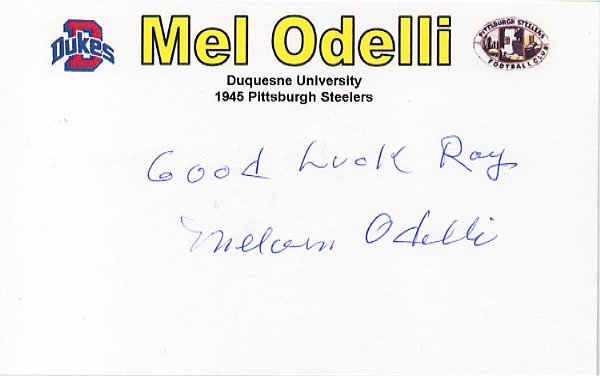 Dukes
Mel Odelli
PITTSBURGH STEELERS
FOOTBALL CLUB
Duquesne University
1945 Pittsburgh Steelers
Good Luck Ray
Melvin Odelli